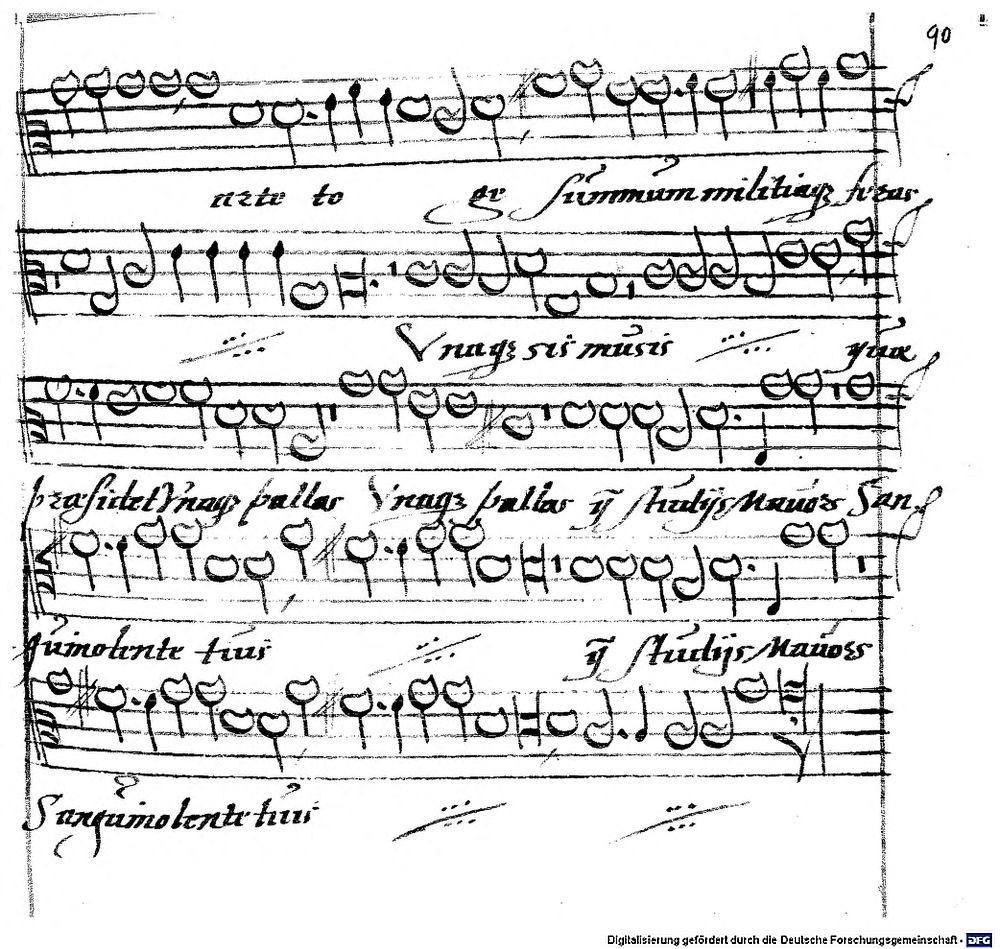 90
arte to ge summum militiaqȝ feras
Vnaqȝ sis musis quæ
præsidet Vnaqȝ pallas Vnaqȝ pallas ij studijs Mauors San
quinolente tuis ij studijs Mauors
Sanquinolente tuis
Digitalisierung gefördert durch die Deutsche Forschungsgemeinschaft - DFG